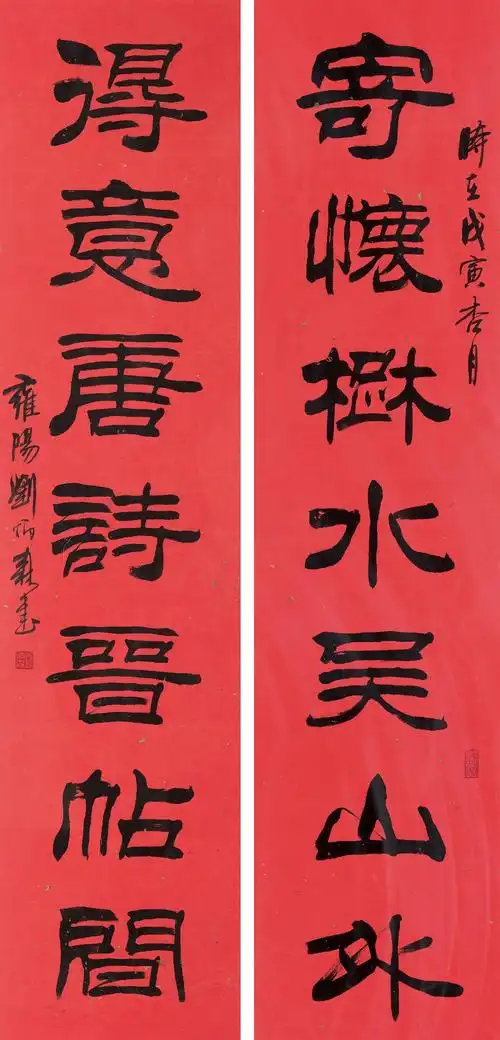 寄懷楚水吳山外
時在戊寅杏月
得意唐詩晉帖間
雍陽劉炳森書